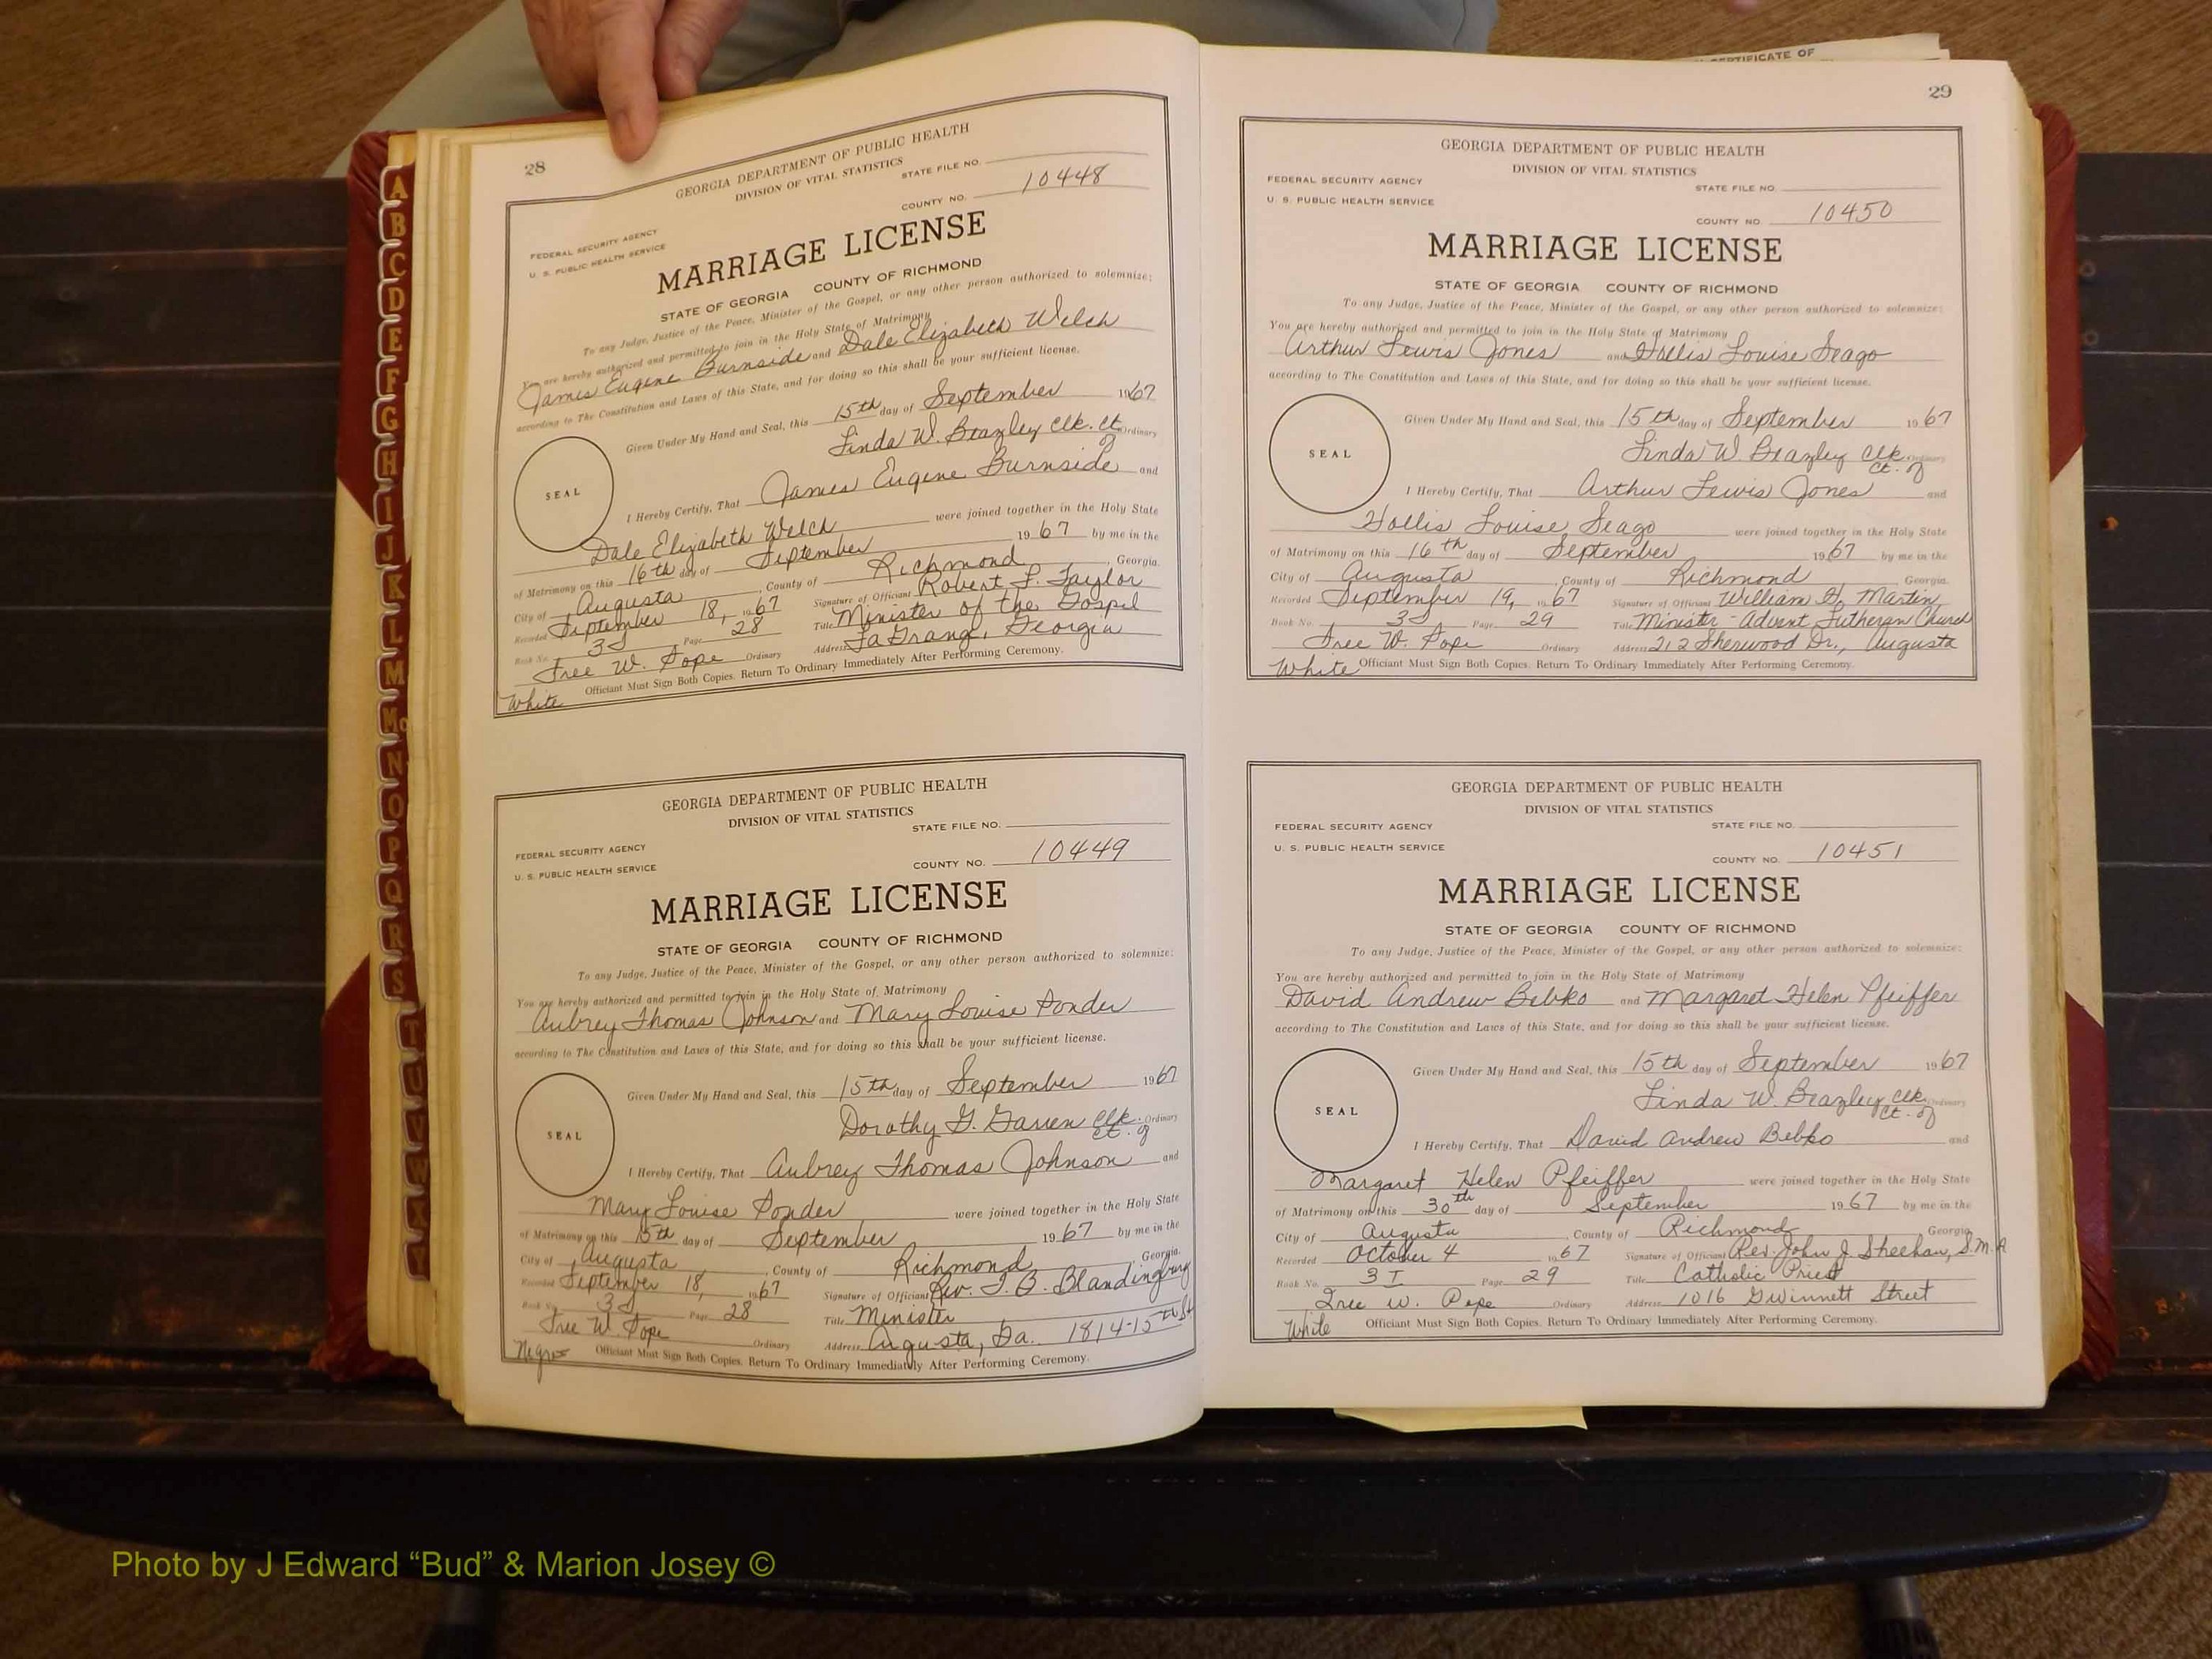 CERTIFICATE OF
A
B
C
D
E
F
G
H
I
J
K
L
M
Mc
N
O
P
Q
R
S
T
U
V
W
X
28
GEORGIA DEPARTMENT OF PUBLIC HEALTH
DIVISION OF VITAL STATISTICS
STATE FILE NO.
COUNTY NO. 10448
FEDERAL SECURITY AGENCY
U. S. PUBLIC HEALTH SERVICE
MARRIAGE LICENSE
STATE OF GEORGIA COUNTY OF RICHMOND
To any Judge, Justice of the Peace, Minister of the Gospel, or any other person authorized to solemnize:
You are hereby authorized and permitted to join in the Holy State of Matrimony
James Eugene Burnside and Dale Elizabeth Welch
according to The Constitution and Laws of this State, and for doing so this shall be your sufficient license.
Given Under My Hand and Seal, this 15th day of September 1967
Linda W. Beazley Clk. Ct. of Ordinary
SEAL
I Hereby Certify, That James Eugene Burnside and
Dale Elizabeth Welch were joined together in the Holy State
of Matrimony on this 16th day of September 1967 by me in the
City of Augusta, County of Richmond, Georgia.
Recorded September 18, 1967 Signature of Officiant Robert L. Taylor
Book No. 3J Page 28 Title Minister of the Gospel
Tree W. Pope Ordinary Address LaGrange, Georgia
Officiant Must Sign Both Copies. Return To Ordinary Immediately After Performing Ceremony.
White
GEORGIA DEPARTMENT OF PUBLIC HEALTH
DIVISION OF VITAL STATISTICS
STATE FILE NO.
FEDERAL SECURITY AGENCY
COUNTY NO. 10449
U. S. PUBLIC HEALTH SERVICE
MARRIAGE LICENSE
STATE OF GEORGIA COUNTY OF RICHMOND
To any Judge, Justice of the Peace, Minister of the Gospel, or any other person authorized to solemnize:
You are hereby authorized and permitted to join in the Holy State of Matrimony
Aubrey Thomas Johnson and Mary Louise Ponder
according to The Constitution and Laws of this State, and for doing so this shall be your sufficient license.
Given Under My Hand and Seal, this 15th day of September 1967
Dorothy G. Clk. Ct. of Ordinary
SEAL
I Hereby Certify, That Aubrey Thomas Johnson and
Mary Louise Ponder were joined together in the Holy State
of Matrimony on this 15th day of September 1967 by me in the
City of Augusta, County of Richmond Georgia.
Recorded September 18, 1967 Signature of Officiant Rev.
Book No. 3J Page 28 Title Minister
Tree W. Pope Ordinary Address Augusta, Ga. 1814-15th St
Negro Officiant Must Sign Both Copies. Return To Ordinary Immediately After Performing Ceremony.
29
GEORGIA DEPARTMENT OF PUBLIC HEALTH
DIVISION OF VITAL STATISTICS
FEDERAL SECURITY AGENCY
STATE FILE NO.
U. S. PUBLIC HEALTH SERVICE
COUNTY NO. 10450
MARRIAGE LICENSE
STATE OF GEORGIA COUNTY OF RICHMOND
To any Judge, Justice of the Peace, Minister of the Gospel, or any other person authorized to solemnize:
You are hereby authorized and permitted to join in the Holy State of Matrimony
Arthur Lewis Jones and Hollis Louise Seago
according to The Constitution and Laws of this State, and for doing so this shall be your sufficient license.
Given Under My Hand and Seal, this 15th day of September 1967
Linda W. Beazley Clk. Ct. of Ordinary
SEAL
I Hereby Certify, That Arthur Lewis Jones and
Hollis Louise Seago were joined together in the Holy State
of Matrimony on this 16th day of September 1967 by me in the
City of Augusta, County of Richmond Georgia.
Recorded September 19, 1967 Signature of Officiant William H. Martin
Book No. 3J Page 29 Title Minister - Advent Lutheran Church
Tree W. Pope Ordinary Address 212 Sherwood Dr., Augusta
White Officiant Must Sign Both Copies. Return To Ordinary Immediately After Performing Ceremony.
GEORGIA DEPARTMENT OF PUBLIC HEALTH
DIVISION OF VITAL STATISTICS
FEDERAL SECURITY AGENCY
STATE FILE NO.
U. S. PUBLIC HEALTH SERVICE
COUNTY NO. 10451
MARRIAGE LICENSE
STATE OF GEORGIA COUNTY OF RICHMOND
To any Judge, Justice of the Peace, Minister of the Gospel, or any other person authorized to solemnize:
You are hereby authorized and permitted to join in the Holy State of Matrimony
David Andrew Bebko and Margaret Helen Pfeiffer
according to The Constitution and Laws of this State, and for doing so this shall be your sufficient license.
Given Under My Hand and Seal, this 15th day of September 1967
Linda W. Beazley, Clk. Ct. of Ordinary
SEAL
I Hereby Certify, That David Andrew Bebko and
Margaret Helen Pfeiffer were joined together in the Holy State
of Matrimony on this 30th day of September 1967 by me in the
City of Augusta, County of Richmond Georgia,
Recorded October 4 1967 Signature of Officiant Rev. John J. Sheehan, S.M.A
Book No. 3I Page 29 Title Catholic Priest
Tree W. Pope Ordinary Address 1016 Gwinnett Street
White Officiant Must Sign Both Copies. Return To Ordinary Immediately After Performing Ceremony.
Photo by J Edward “Bud” & Marion Josey ©